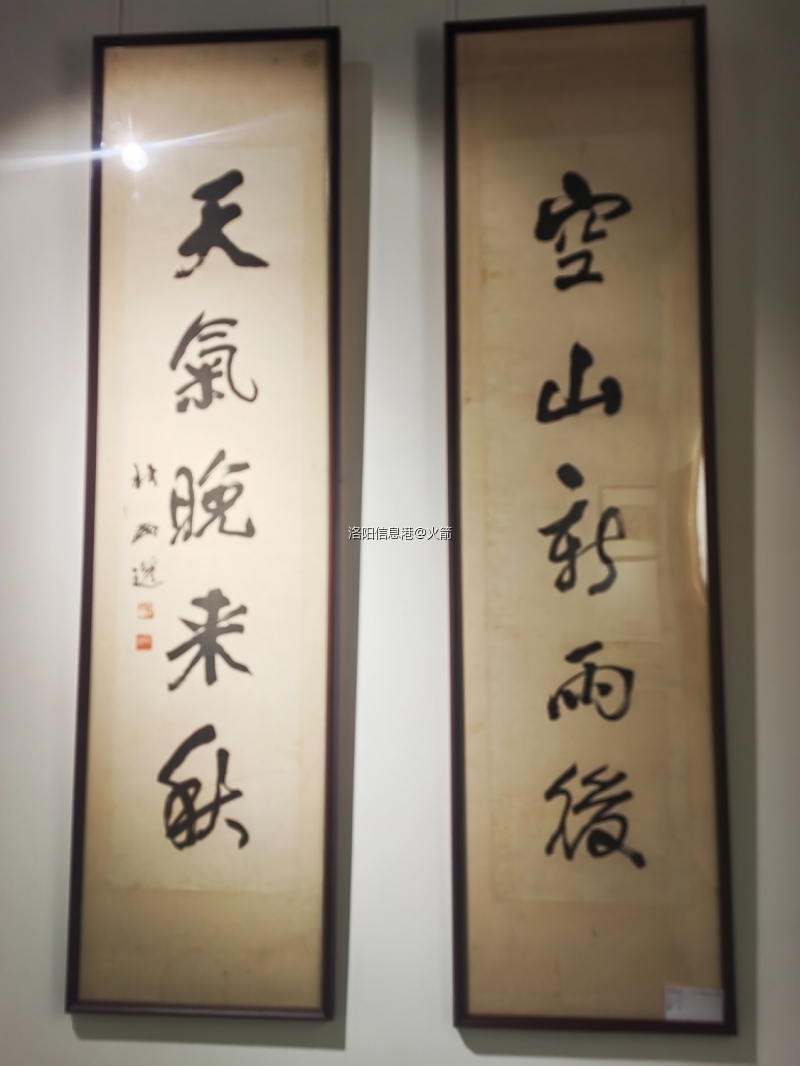 空山新雨後
天氣晚来秋
洛阳信息港@火箭